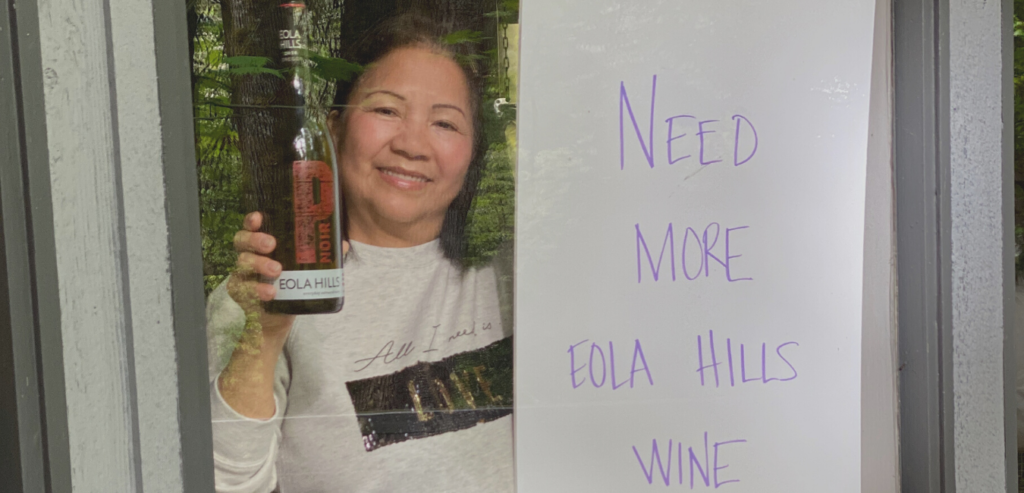 EOLA
HILLS
NOIR
EOLA HILLS
All I need is
NEED
MORE
EOLA HILLS
WINE